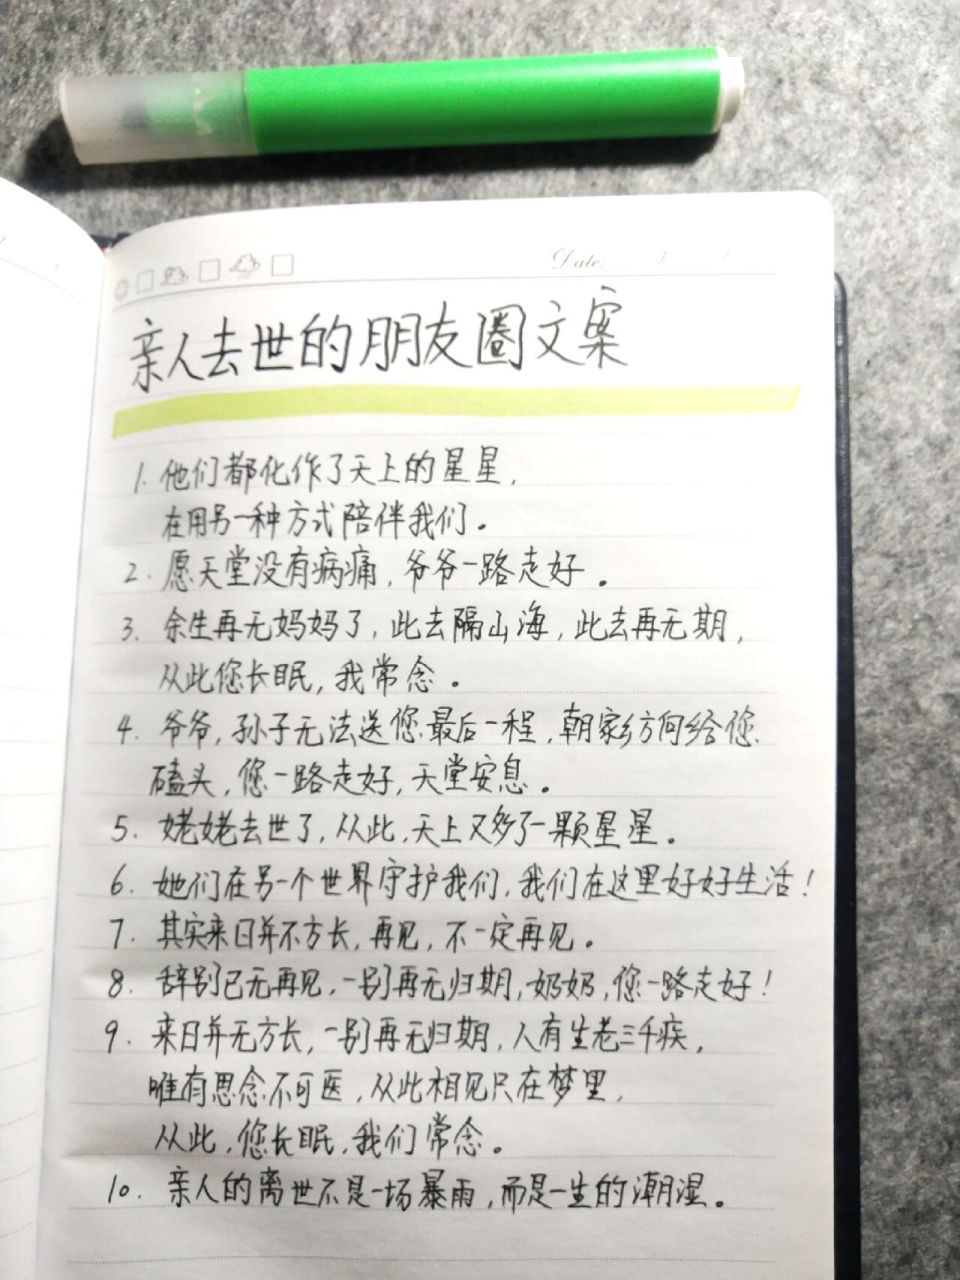 Date: / /
亲人去世的朋友圈文案
1. 他们都化作了天上的星星,
在用另一种方式陪伴我们。
2. 愿天堂没有病痛,爷爷一路走好。
3. 余生再无妈妈了,此去隔山海,此去再无期,
从此您长眠,我常念。
4. 爷爷,孙子无法送您最后一程,朝家乡方向给您
磕头,您一路走好,天堂安息。
5. 姥姥去世了,从此,天上又多了一颗星星。
6. 她们在另一个世界守护我们,我们在这里好好生活!
7. 其实来日并不方长,再见,不一定再见。
8. 辞别已无再见,一别再无归期,奶奶,您一路走好!
9. 来日并无方长,一别再无归期,人有生老三千疾,
唯有思念不可医,从此相见只在梦里,
从此,您长眠,我们常念。
10. 亲人的离世不是一场暴雨,而是一生的潮湿。